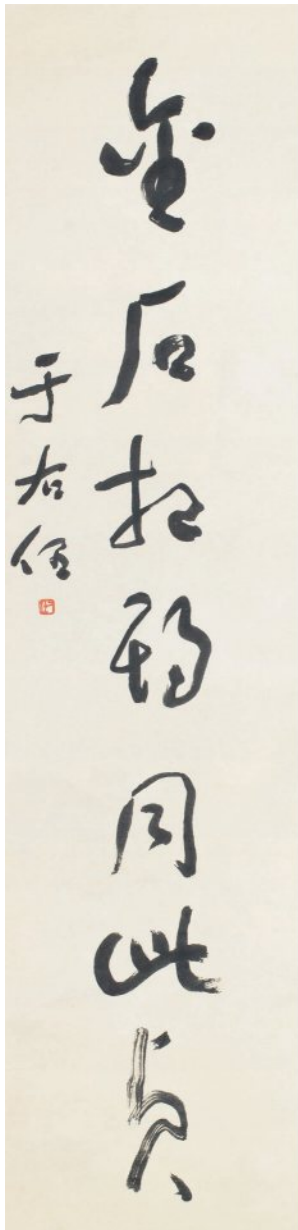 金石相期同此貞
于右任